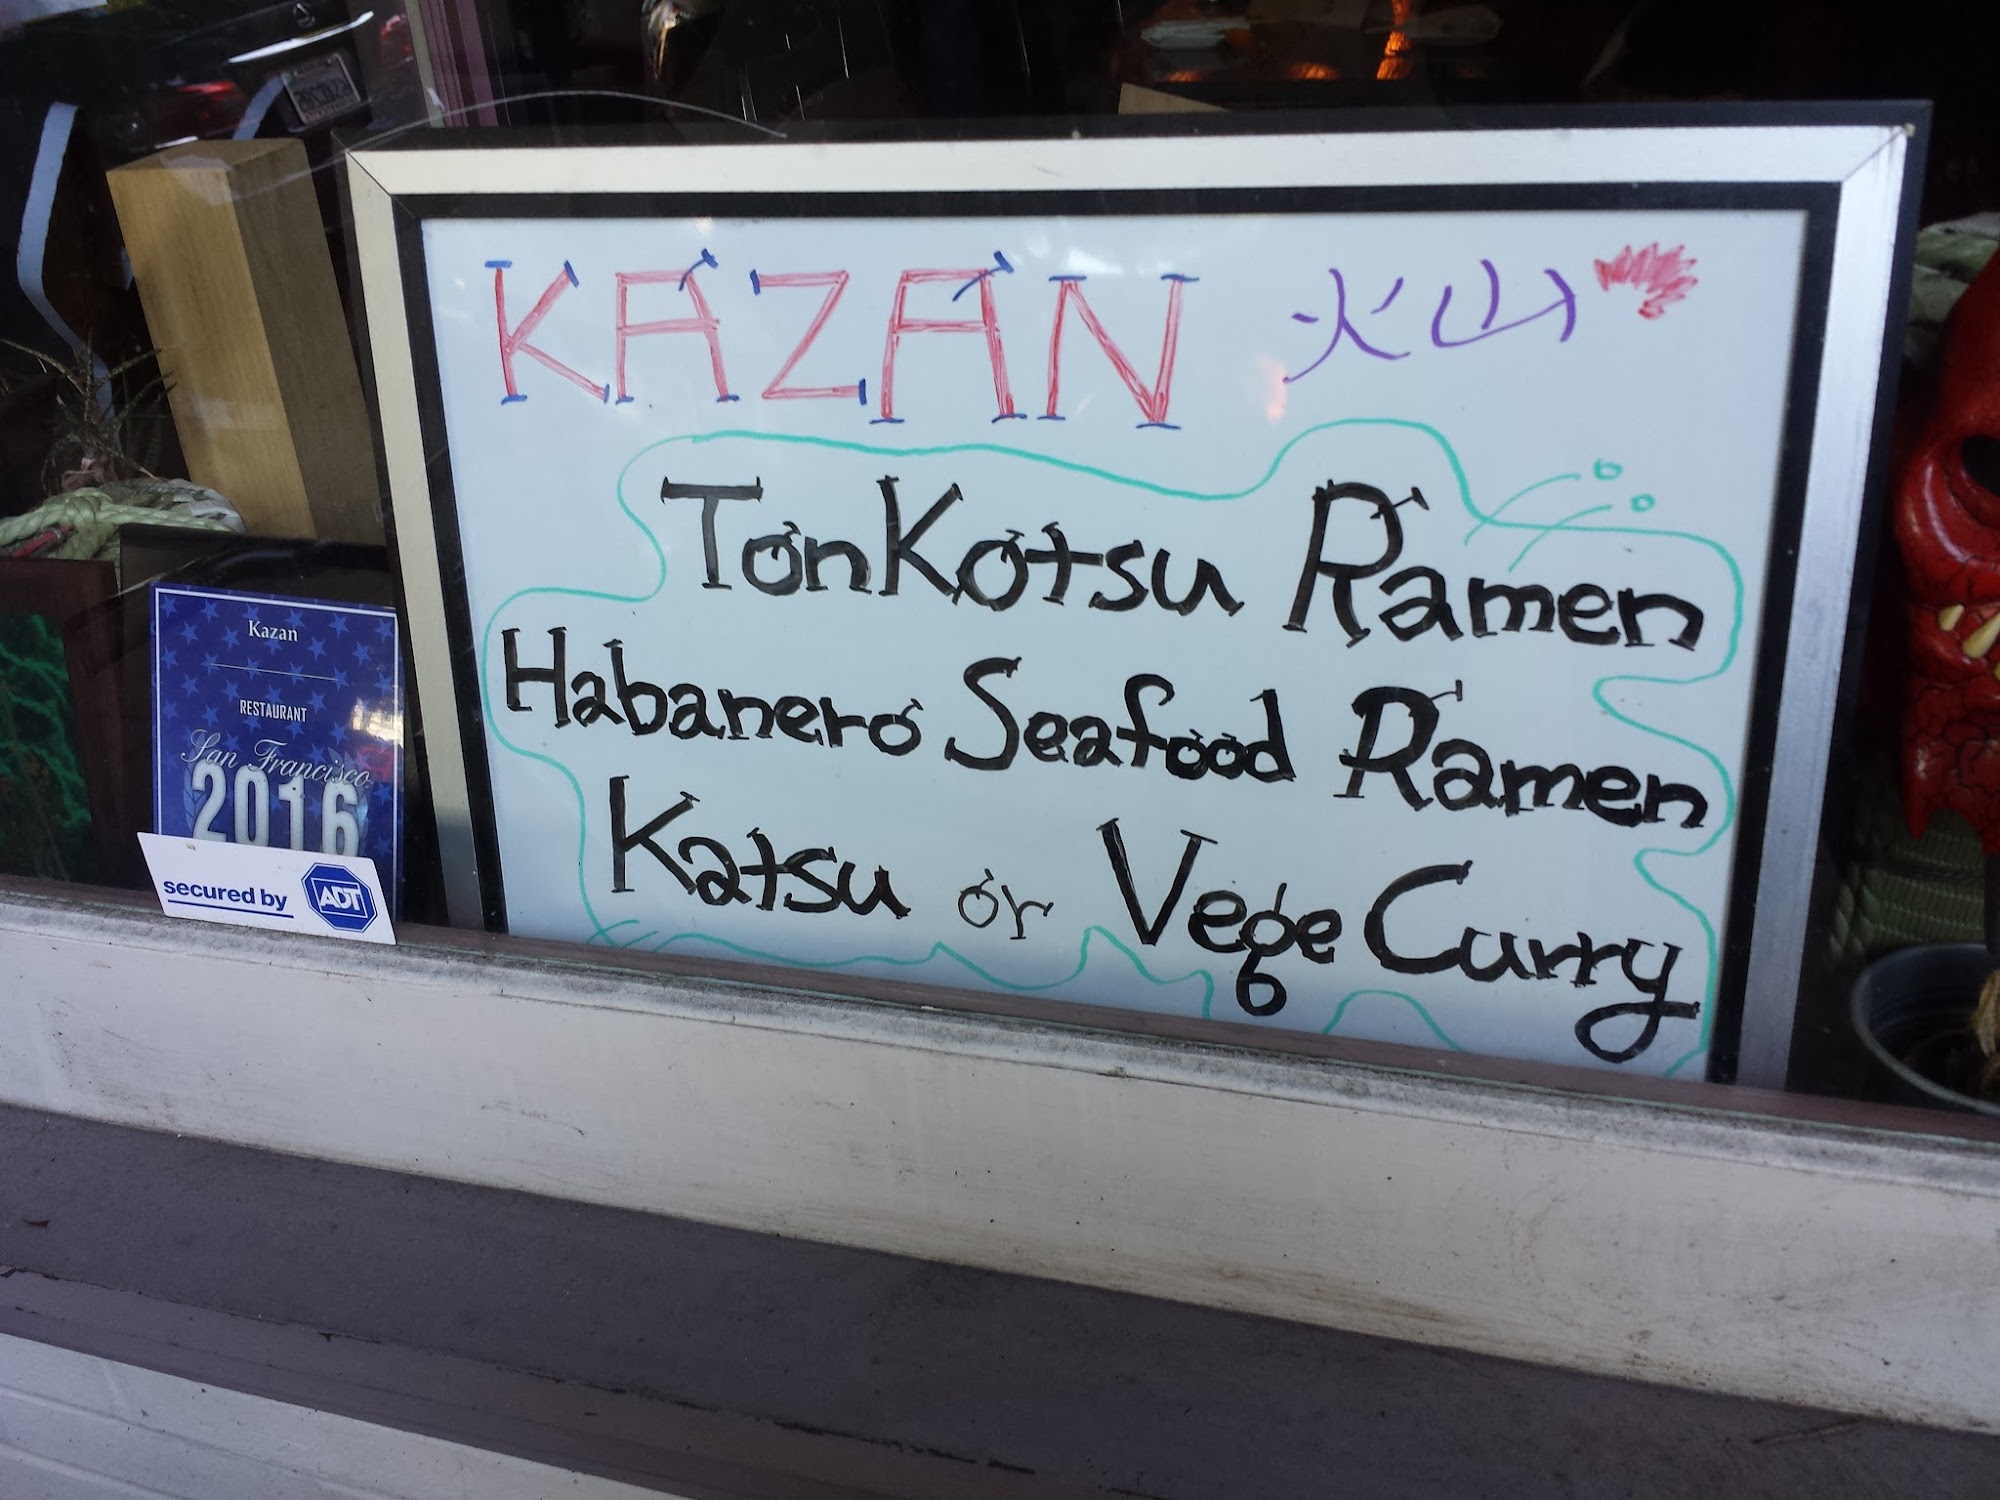 KAZAN 火山
TonKotsu Ramen
Habanero Seafood Ramen
Katsu or Vege Curry
Kazan
RESTAURANT
San Francisco
2016
secured by ADT